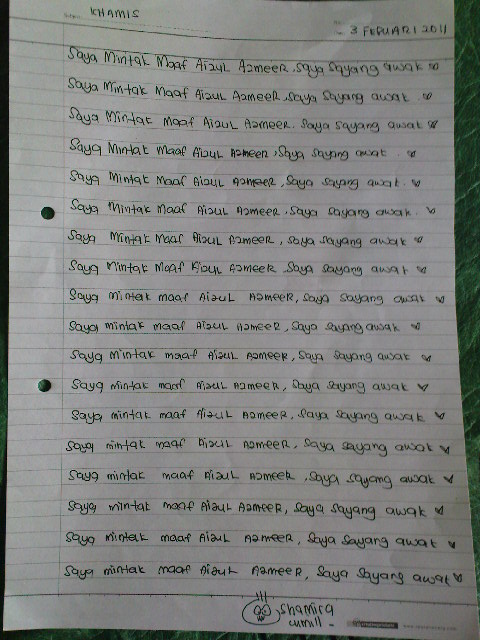 KHAMIS
3 FEBUARI 2011
Saya Mintak Maaf Aizul Azmeer, Saya Sayang awak
Saya Mintak Maaf Aizul Azmeer, Saya Sayang awak
Saya Mintak Maaf Aizul Azmeer. Saya Sayang awak
Saya Mintak Maaf Aizul Azmeer, Saya Sayang awak
Saya Mintak Maaf Aizul Azmeer, Saya Sayang awak.
Saya Mintak Maaf Aizul Azmeer. Saya Sayang awak.
Saya Mintak Maaf Aizul Azmeer, Saya Sayang awak
Saya Mintak Maaf Aizul Azmeer, Saya Sayang awak
Saya mintak maaf Aizul Azmeer, Saya Sayang awak
Saya mintak maaf Aizul Azmeer, Saya Sayang awak
Saya mintak maaf Aizul Azmeer, Saya Sayang awak
Saya mintak maaf Aizul Azmeer, Saya Sayang awak
Saya mintak maaf Aizul Azmeer, Saya Sayang awak
Saya mintak maaf Aizul Azmeer, Saya Sayang awak
Saya mintak maaf Aizul Azmeer, Saya Sayang awak
Saya mintak maaf Aizul Azmeer, Saya Sayang awak
Saya mintak maaf Aizul Azmeer, Saya Sayang awak
Saya mintak maaf Aizul Azmeer, Saya Sayang awak
Shamira
cumill